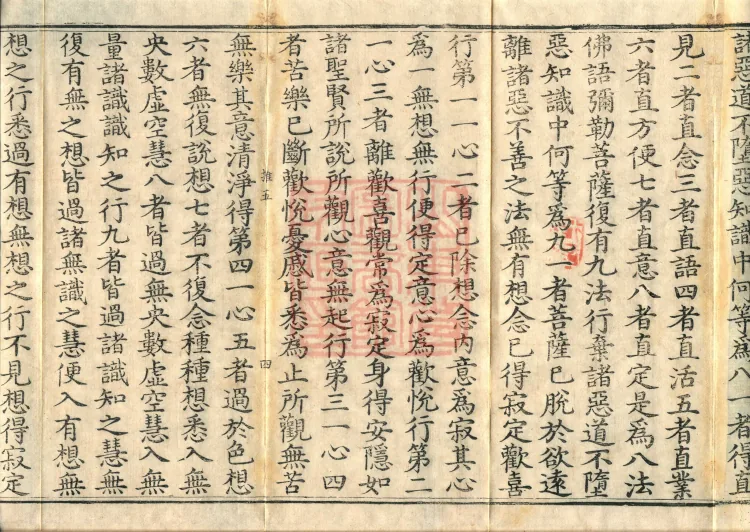 諸惡道不墮惡知識中何等爲八一者得直
見二者直念三者直語四者直活五者直業
六者直方便七者直意八者直定是爲八法
佛語彌勒菩薩復有九法行棄諸惡道不墮
惡知識中何等爲九一者菩薩已脫於欲遠
離諸惡不善之法無有想念已得寂定歡喜
行第一一心二者已除想念内意爲寂其心
爲一無想無行便得定意心爲歡悅行第二
一心三者離歡喜觀常爲寂定身得安隱如
諸聖賢所說所觀心意無起行第三一心四
者苦樂已斷歡悅憂慼皆悉爲止所觀無苦
推五 四
無樂其意清淨得第四一心五者過於色想
六者無復說想七者不復念種種想悉入無
央數虛空慧八者皆過無央數虛空慧入無
量諸識識知之行九者皆過諸識知之慧無
復有無之想皆過諸無識之慧便入有想無
想之行悉過有想無想之行不見想得寂定